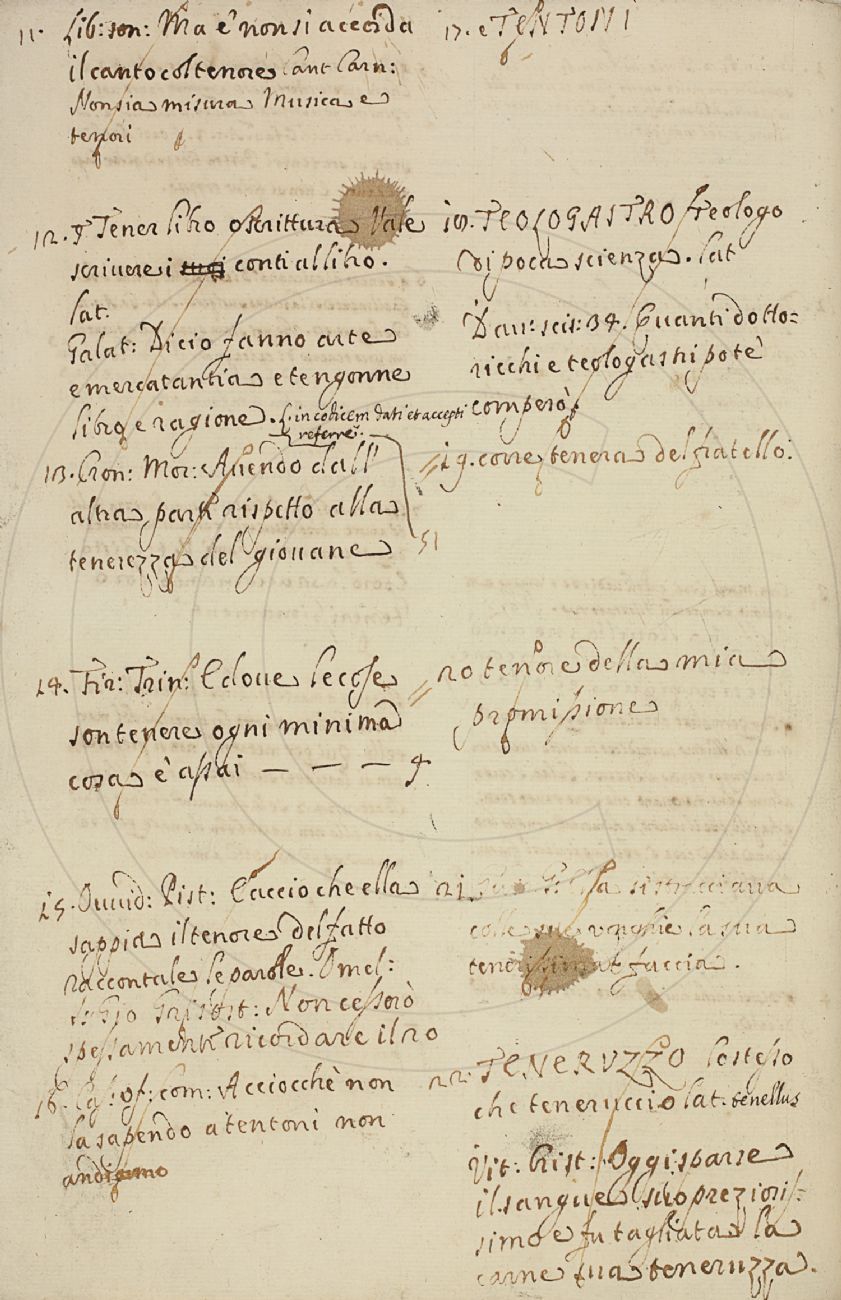 11. Lib: son: Ma e' non si accorda
il canto col tenore Cant Carn:
Non sia misura Musica e
tenori
12. § Tener libro o scrittura Vale
scrivere i suoi conti al libro.
lat.
Galat: Di cio fanno arte
e mercatantia e tengonne
libro e ragione. L. in codicem dati et accepti
referre.
13. Cron: Mor: Avendo dall'
altra parte rispetto alla
tenerezza del giovane
51
14. Fir: Trin: E dove le cose
son tenere ogni minima
cosa è assai — — — §
15. Ovvid: Pist: Caccio che ella
sappia il tenore del fatto
raccontale le parole. Omel:
Grisost: Non cesserò
spessamente ricordare il no
16. Cas: uf: com: Acciocchè non
la sapendo a tentoni non
andiamo
17. e TENTONI
18. TEOLOGASTRO Teologo
di poca scienza. lat
Dav: scis: 34. Quanti dotto=
ricchi e teologastri potè
comperò.
19. corre, tenera del fratello:
20 tenore della mia
promissione
21. si stracciava
colle sue unghie la sua
tenerissima faccia.
22. TENERUZZO lo stesso
che teneruccio lat: tenellus
Vit: Crist: Oggi sparse
il sangue suo preziosis=
simo e fu tagliata la
carne sua teneruzza.